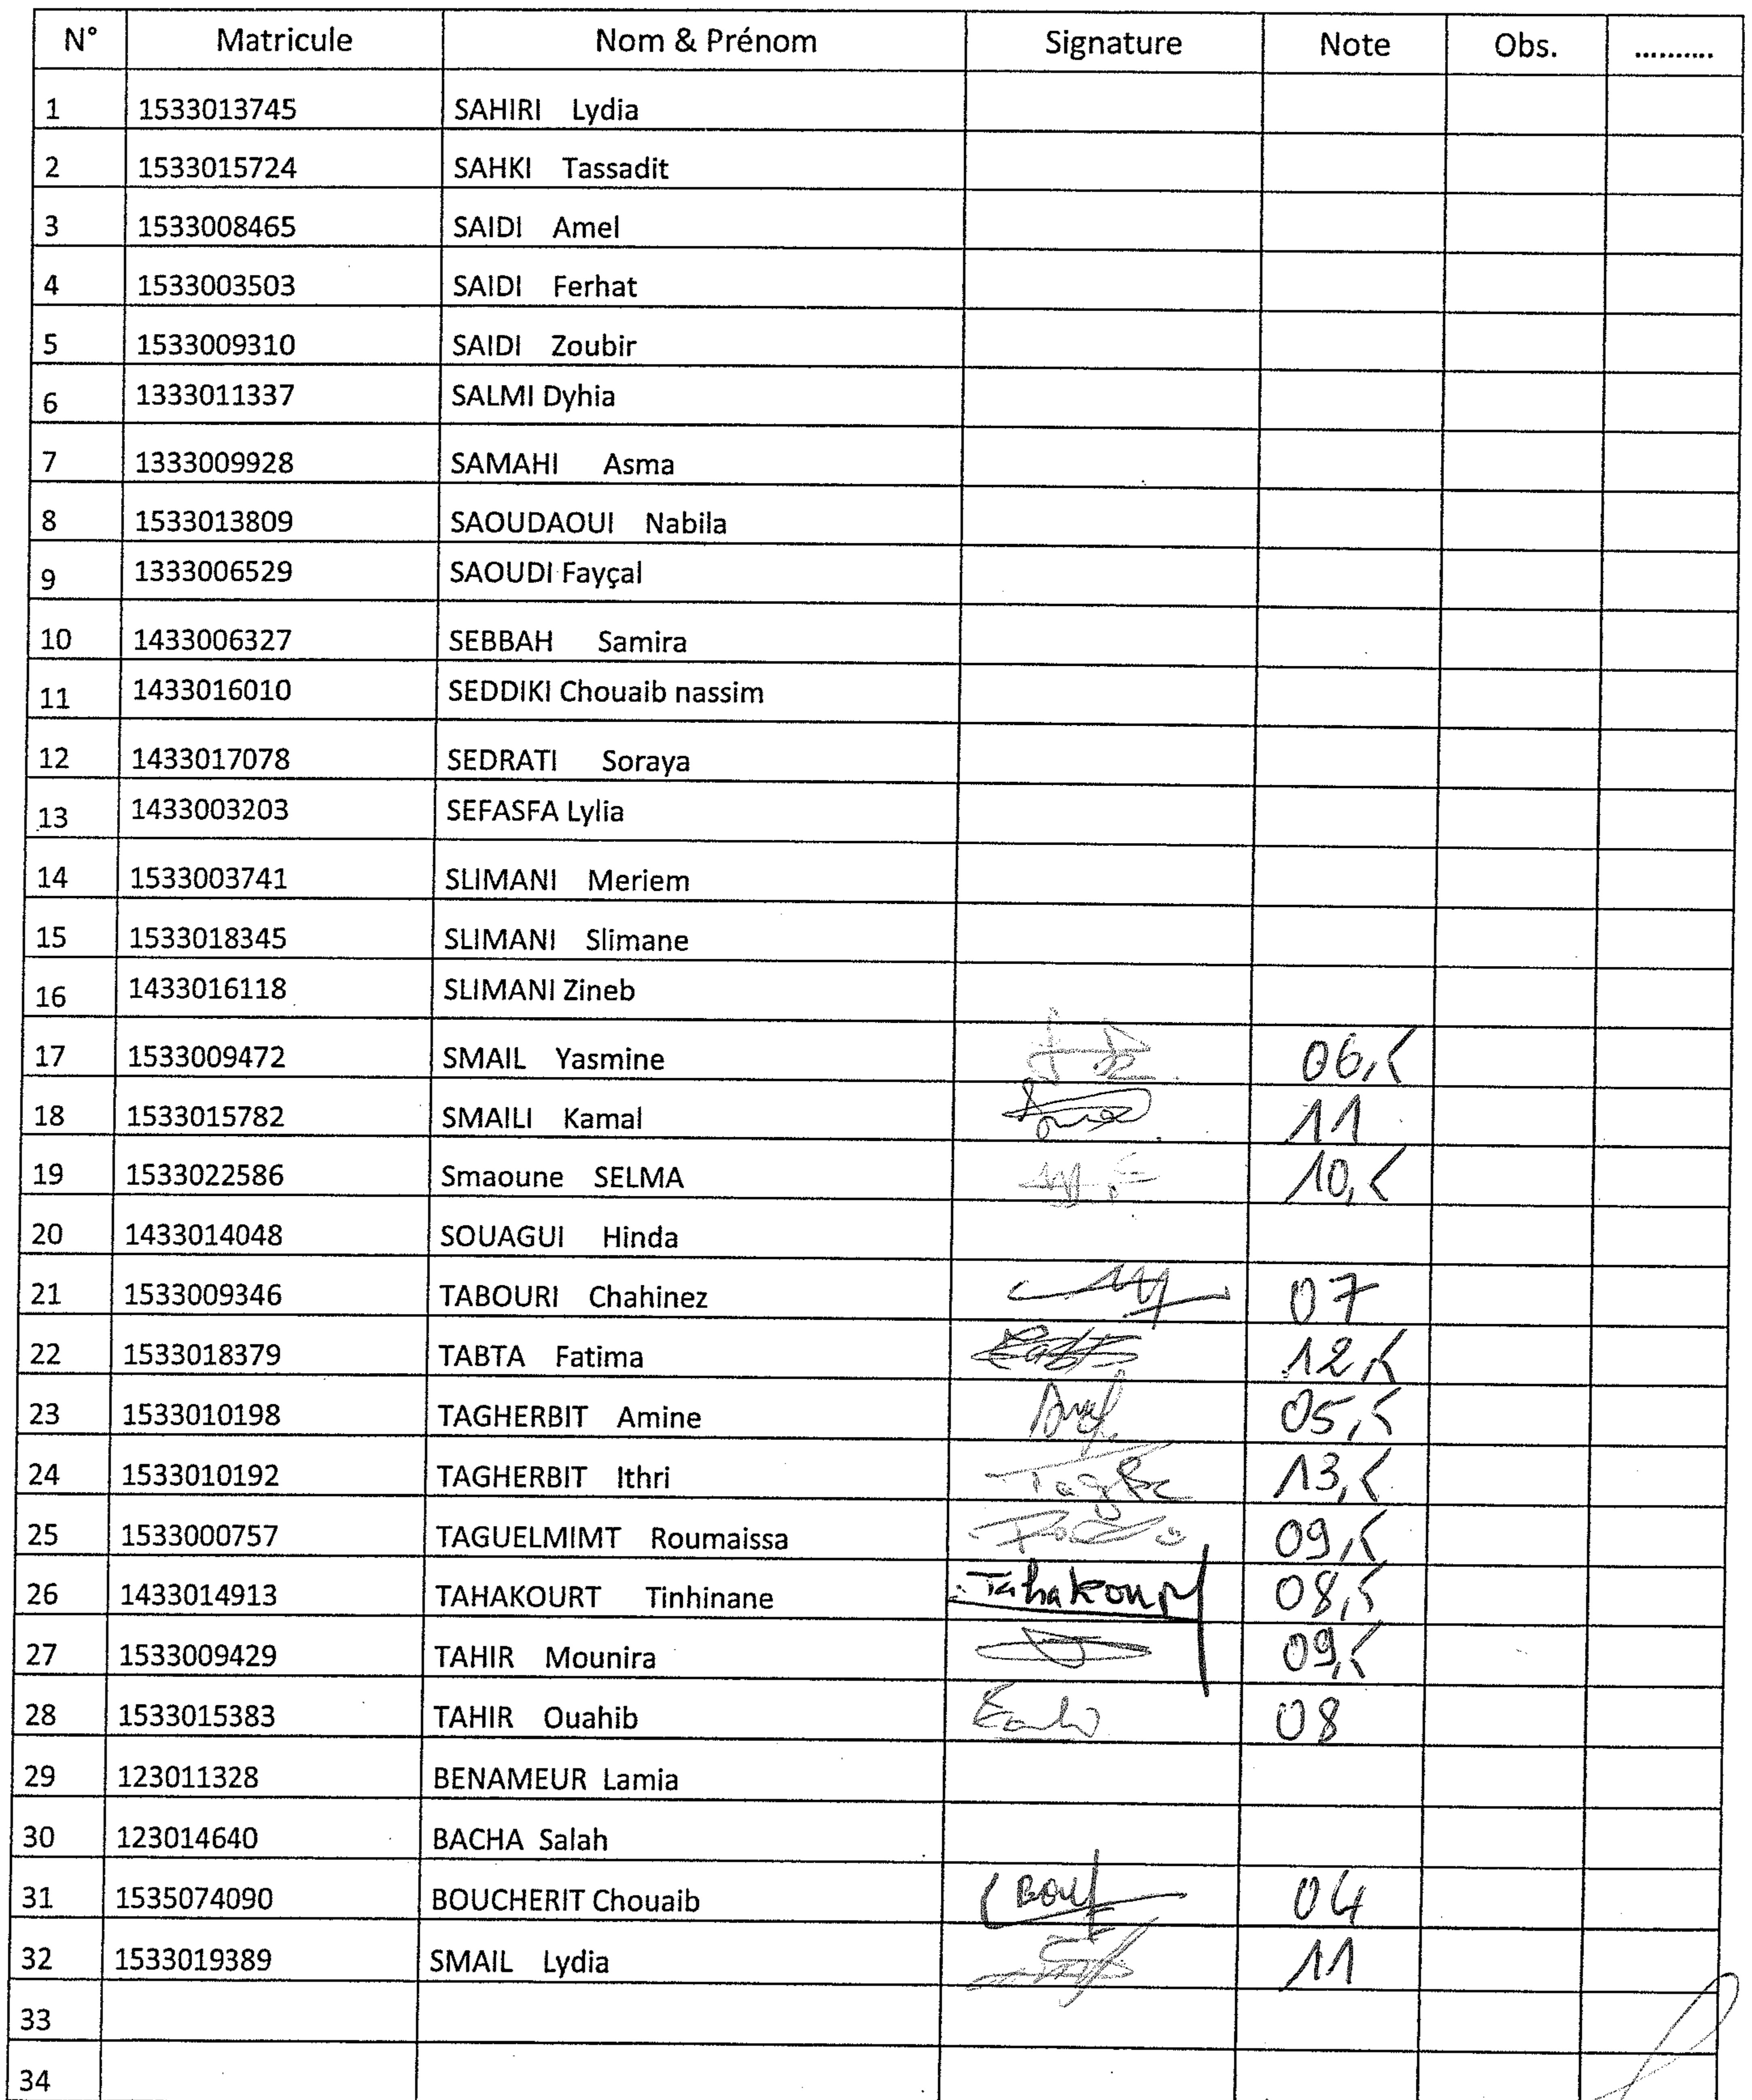 N° Matricule Nom & Prénom Signature Note Obs. ..........
1 1533013745 SAHIRI Lydia
2 1533015724 SAHKI Tassadit
3 1533008465 SAIDI Amel
4 1533003503 SAIDI Ferhat
5 1533009310 SAIDI Zoubir
6 1333011337 SALMI Dyhia
7 1333009928 SAMAHI Asma
8 1533013809 SAOUDAOUI Nabila
9 1333006529 SAOUDI Fayçal
10 1433006327 SEBBAH Samira
11 1433016010 SEDDIKI Chouaib nassim
12 1433017078 SEDRATI Soraya
13 1433003203 SEFASFA Lylia
14 1533003741 SLIMANI Meriem
15 1533018345 SLIMANI Slimane
16 1433016118 SLIMANI Zineb
17 1533009472 SMAIL Yasmine 06,5
18 1533015782 SMAILI Kamal 11
19 1533022586 Smaoune SELMA 10,5
20 1433014048 SOUAGUI Hinda
21 1533009346 TABOURI Chahinez 07
22 1533018379 TABTA Fatima 12,5
23 1533010198 TAGHERBIT Amine 05,5
24 1533010192 TAGHERBIT Ithri 13,5
25 1533000757 TAGUELMIMT Roumaissa 09,5
26 1433014913 TAHAKOURT Tinhinane 08,5
27 1533009429 TAHIR Mounira 09,5
28 1533015383 TAHIR Ouahib 08
29 123011328 BENAMEUR Lamia
30 123014640 BACHA Salah
31 1535074090 BOUCHERIT Chouaib 04
32 1533019389 SMAIL Lydia 11
33
34